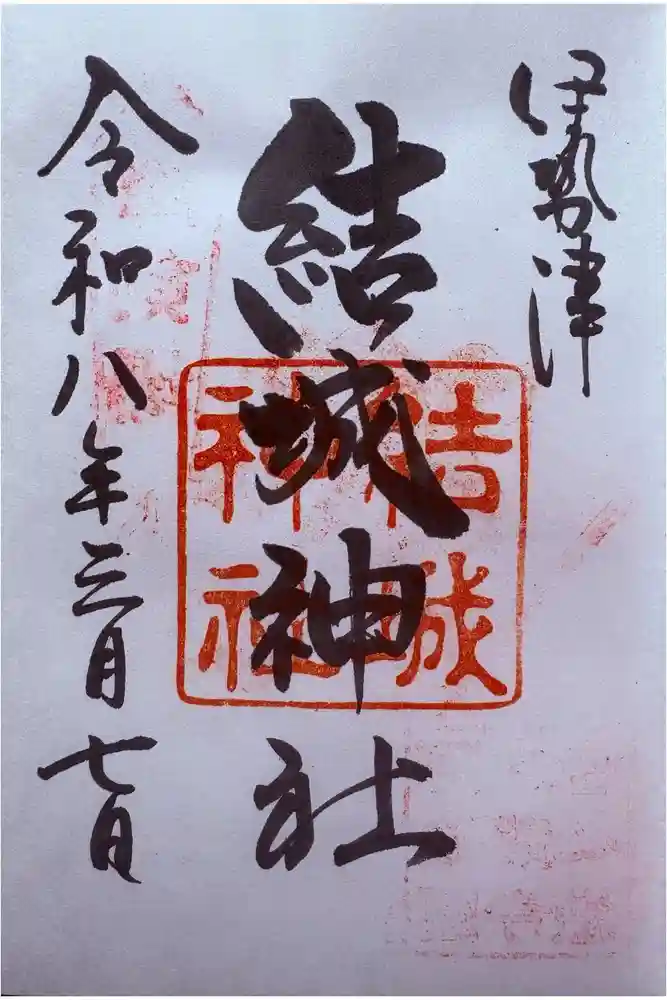 伊勢津
結城神社
結城
神社
令和八年三月七日